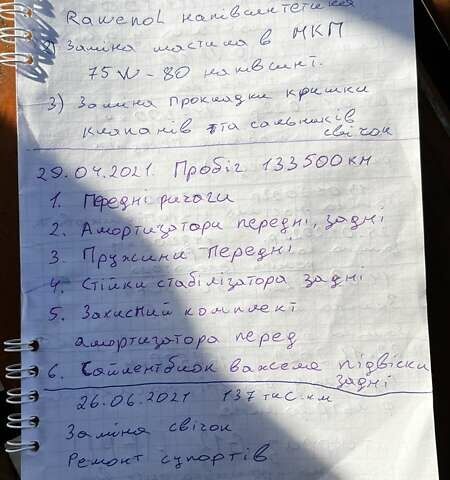 Rawenol напівсинтетика
2) Заміна мастила в МКП
75W-80 напівсинт.
3) Заміна прокладки кришки
клапанів та сальників
свічок
29.04.2021. Пробіг 133500км
1. Передні ричаги
2. Амортизатори передні, задні
3. Пружини передні
4. Стійки стабілізатора задні
5. Захисний комплект
амортизатора перед
6. Сайлентблок важеля підвіски
задні
26.06.2021 137 тис.км
Заміна свічок
Ремонт супортів